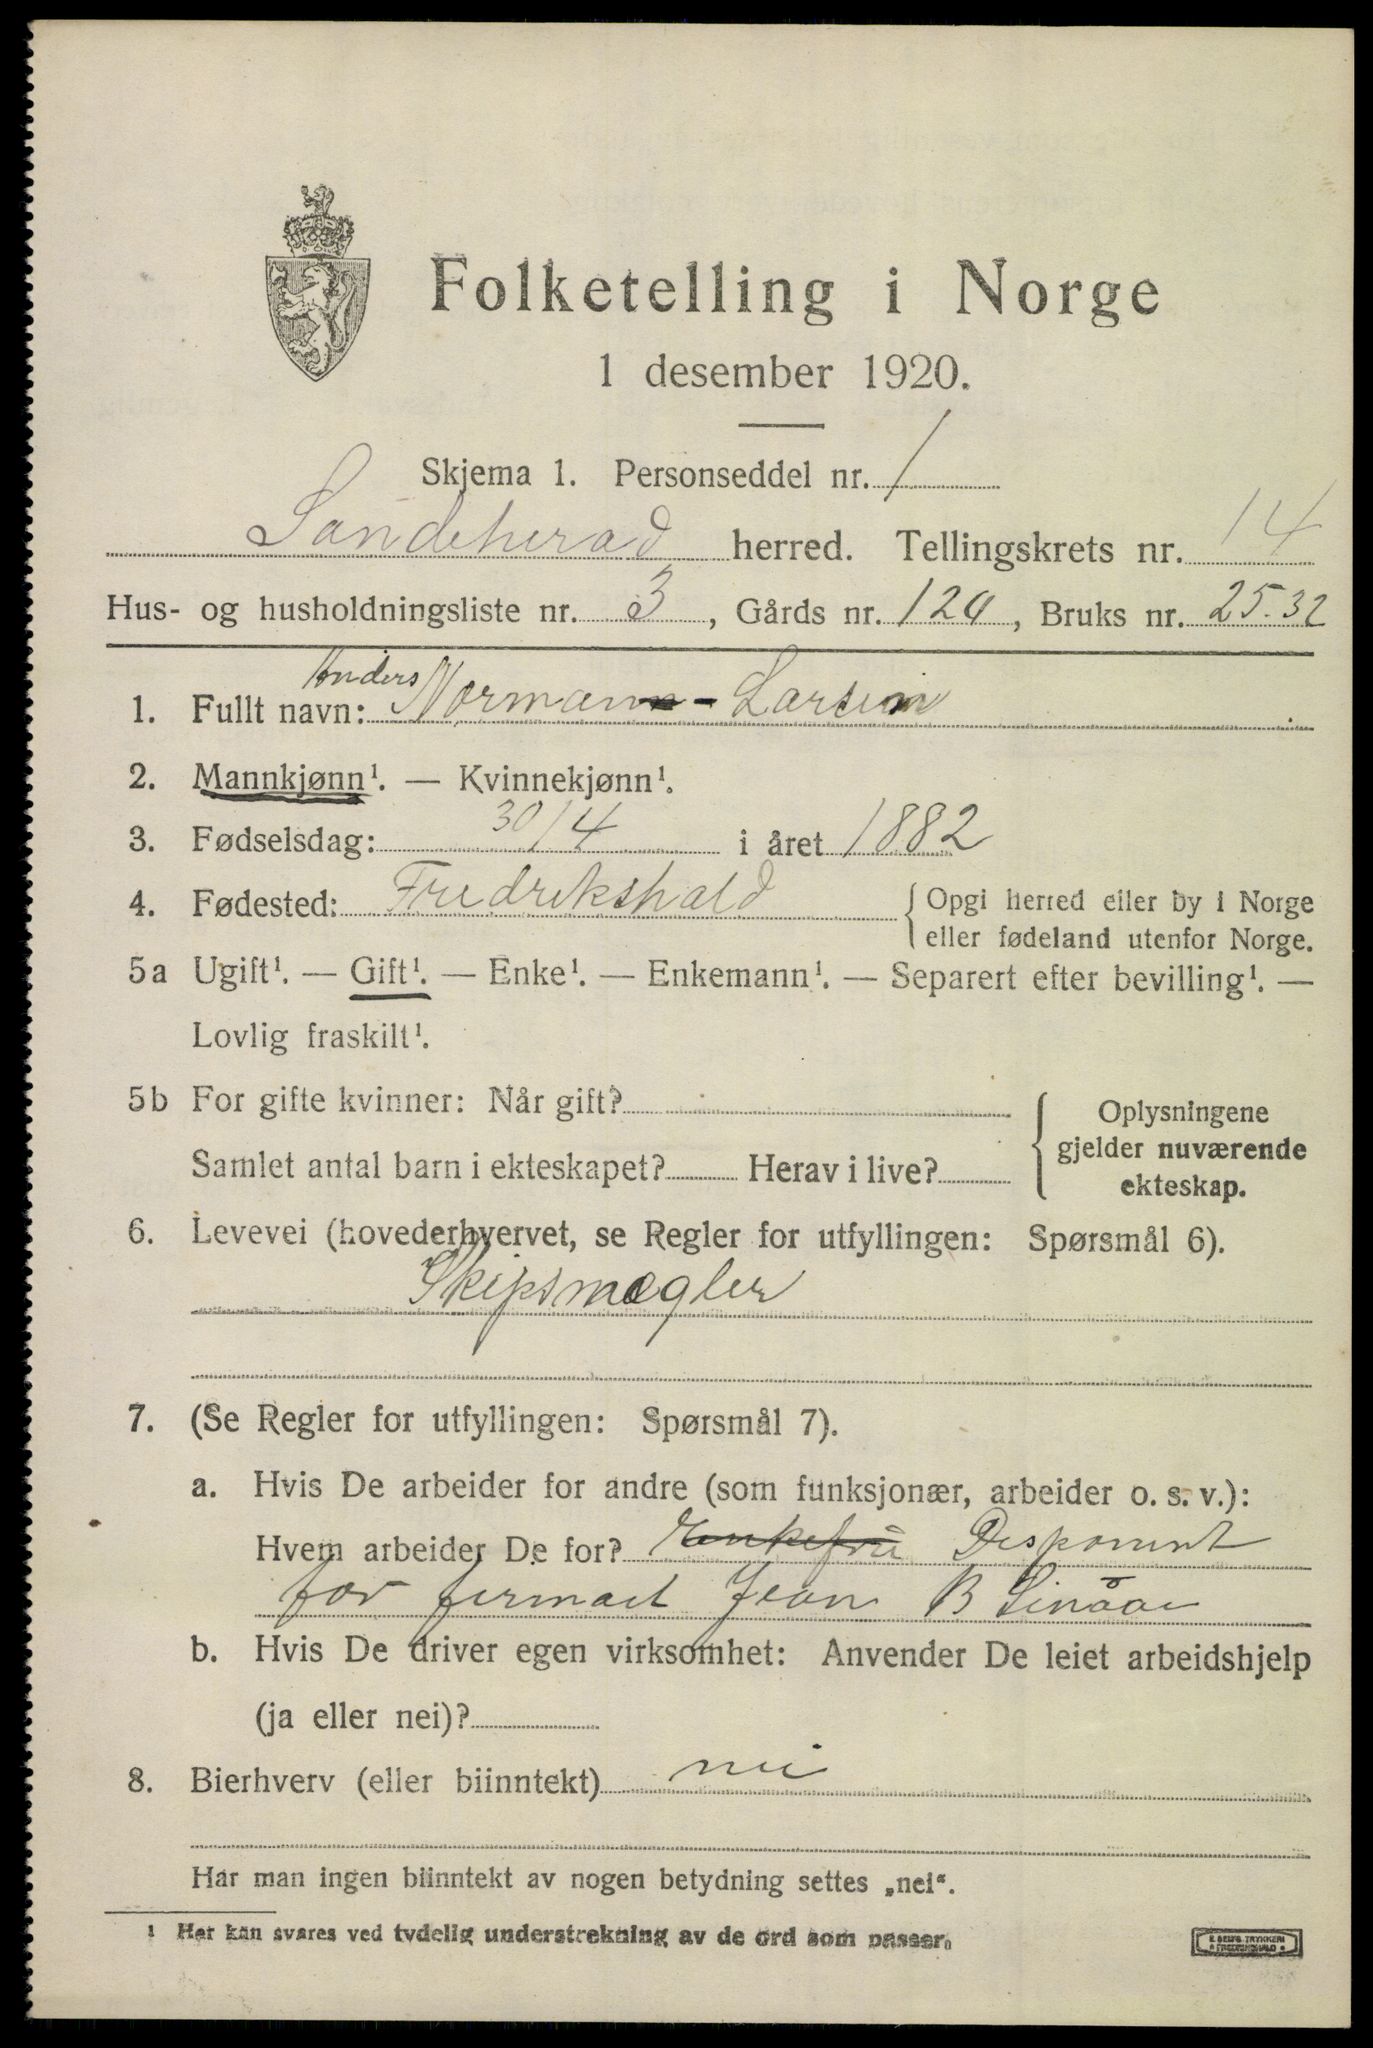 Folketelling i Norge
1 desember 1920.
Skjema 1. Personseddel nr. 1
Sandeherad herred. Tellingskrets nr. 14
Hus- og husholdningsliste nr. 3, Gårds nr. 120, Bruks nr. 25.32
Anders
1. Fullt navn: Normann-Larsen
2. Mannkjønn¹. — Kvinnekjønn¹.
3. Fødselsdag: 30/4 i året 1882
4. Fødested: Fredrikshald { Opgi herred eller by i Norge
eller fødeland utenfor Norge.
5a Ugift¹. — Gift¹. — Enke¹. — Enkemann¹. — Separert efter bevilling¹. —
Lovlig fraskilt¹.
5b For gifte kvinner: Når gift?
Samlet antal barn i ekteskapet? Herav i live?
Oplysningene
gjelder nuværende
ekteskap.
6. Levevei (hovederhvervet, se Regler for utfyllingen: Spørsmål 6).
Skipsmægler
7. (Se Regler for utfyllingen: Spørsmål 7).
a. Hvis De arbeider for andre (som funksjonær, arbeider o. s. v.):
Hvem arbeider De for? Enkefru Disponent
for firmaet Jean B
b. Hvis De driver egen virksomhet: Anvender De leiet arbeidshjelp
(ja eller nei)?
8. Bierhverv (eller biinntekt) nei
Har man ingen biinntekt av nogen betydning settes „nei“.
¹ Her kan svares ved tydelig understrekning av de ord som passer.
E. SEMS TRYKKERI
FREDRIKSHALD